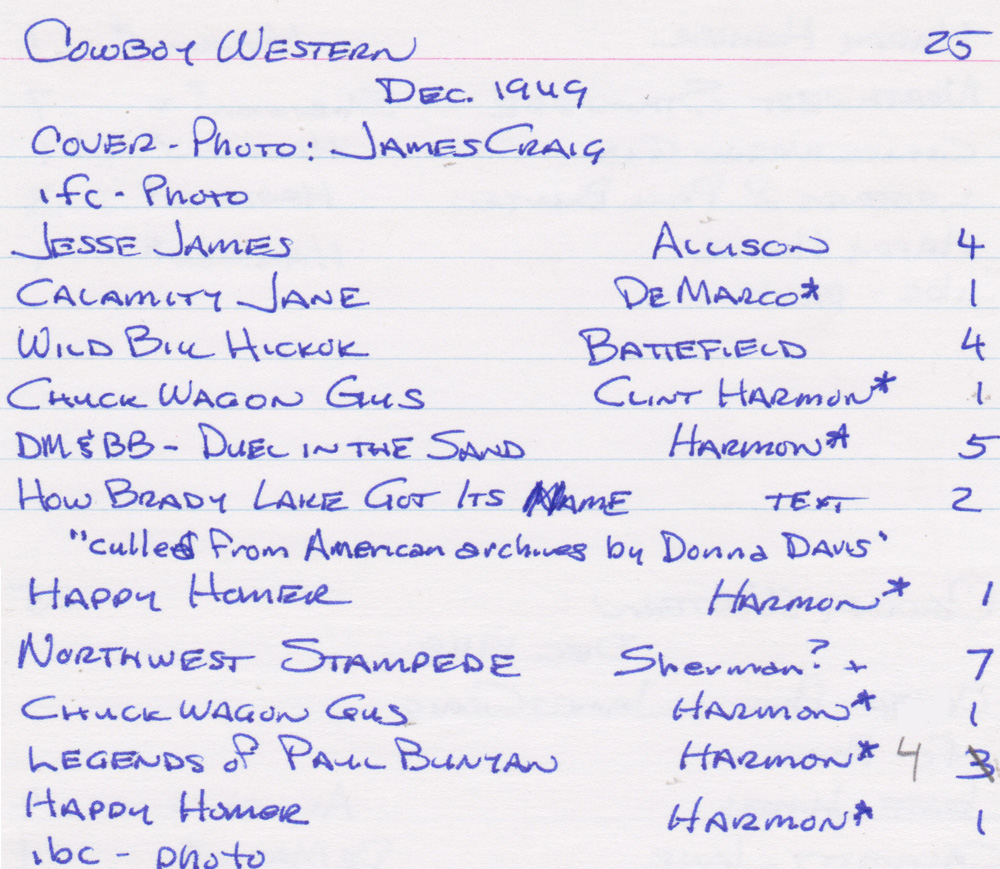 COWBOY WESTERN 25
DEC. 1949
COVER - PHOTO: JAMES CRAIG
ifc - PHOTO
JESSE JAMES ALLISON 4
CALAMITY JANE DEMARCO* 1
WILD BILL HICKOK BATTEFIELD 4
CHUCK WAGON GUS CLINT HARMON* 1
DM & BB - DUEL IN THE SAND HARMON* 5
HOW BRADY LAKE GOT ITS NAME TEXT 2
"culled from American archives by Donna DAVIS"
HAPPY HOMER HARMON* 1
NORTHWEST STAMPEDE Sherman? + 7
CHUCK WAGON GUS HARMON* 1
LEGENDS of PAUL BUNYAN HARMON* 4 3
HAPPY HOMER HARMON* 1
ibc - photo